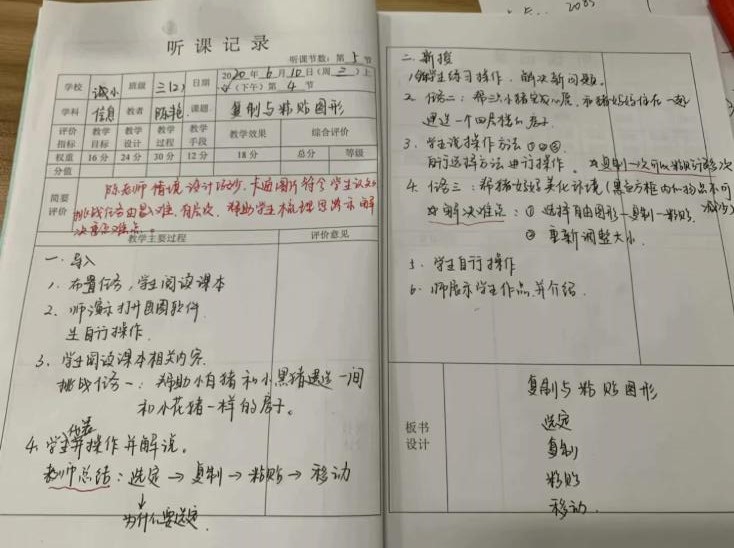 听课记录
听课节数：第 5 节
学校 诚小 班级 三12 日期 2020年6月10日（周三）上
午（下午）第4节
学科 信息 教者 陈艳 课题 复制与粘贴图形
评价指标 教学目标 教学设计 教学过程 教学手段 教学效果 综合评价
权重 16分 24分 30分 12分 18分 总分 等级
分值
简要评价
陈老师情境设计巧妙、卡通图片符合学生认知
挑战任务由易入难，有层次，帮助学生梳理思路并解
决重点难点。
教学主要过程 评价意见
一、导入
1. 布置任务，学生阅读课本
2. 师演示打开画图软件
生自行操作
3. 学生阅读课本相关内容
挑战任务一：帮助小白猪和小黑猪建造一间
和小花猪一样的房子。
4. 学生代表并操作并解说。
教师总结：选定→复制→粘贴→移动
↓
为什么要选定
二、新授
1. 学生练习操作，解决新问题。
2. 任务二：帮三只小猪完成心愿，和猪妈妈住在一起
建造一个四层楼的房子
3. 学生说操作方法①②③
自行选择方法进行操作。☆复制一次可以粘贴许多次
4. 任务三：帮猪妈妈美化环境（黑色方框内的物品不可
减少）
☆解决难点：① 选择自由图形—复制—粘贴
② 重新调整大小
5. 学生自行操作
6. 师展示学生作品并介绍
板书设计
复制与粘贴图形
选定
复制
粘贴
移动